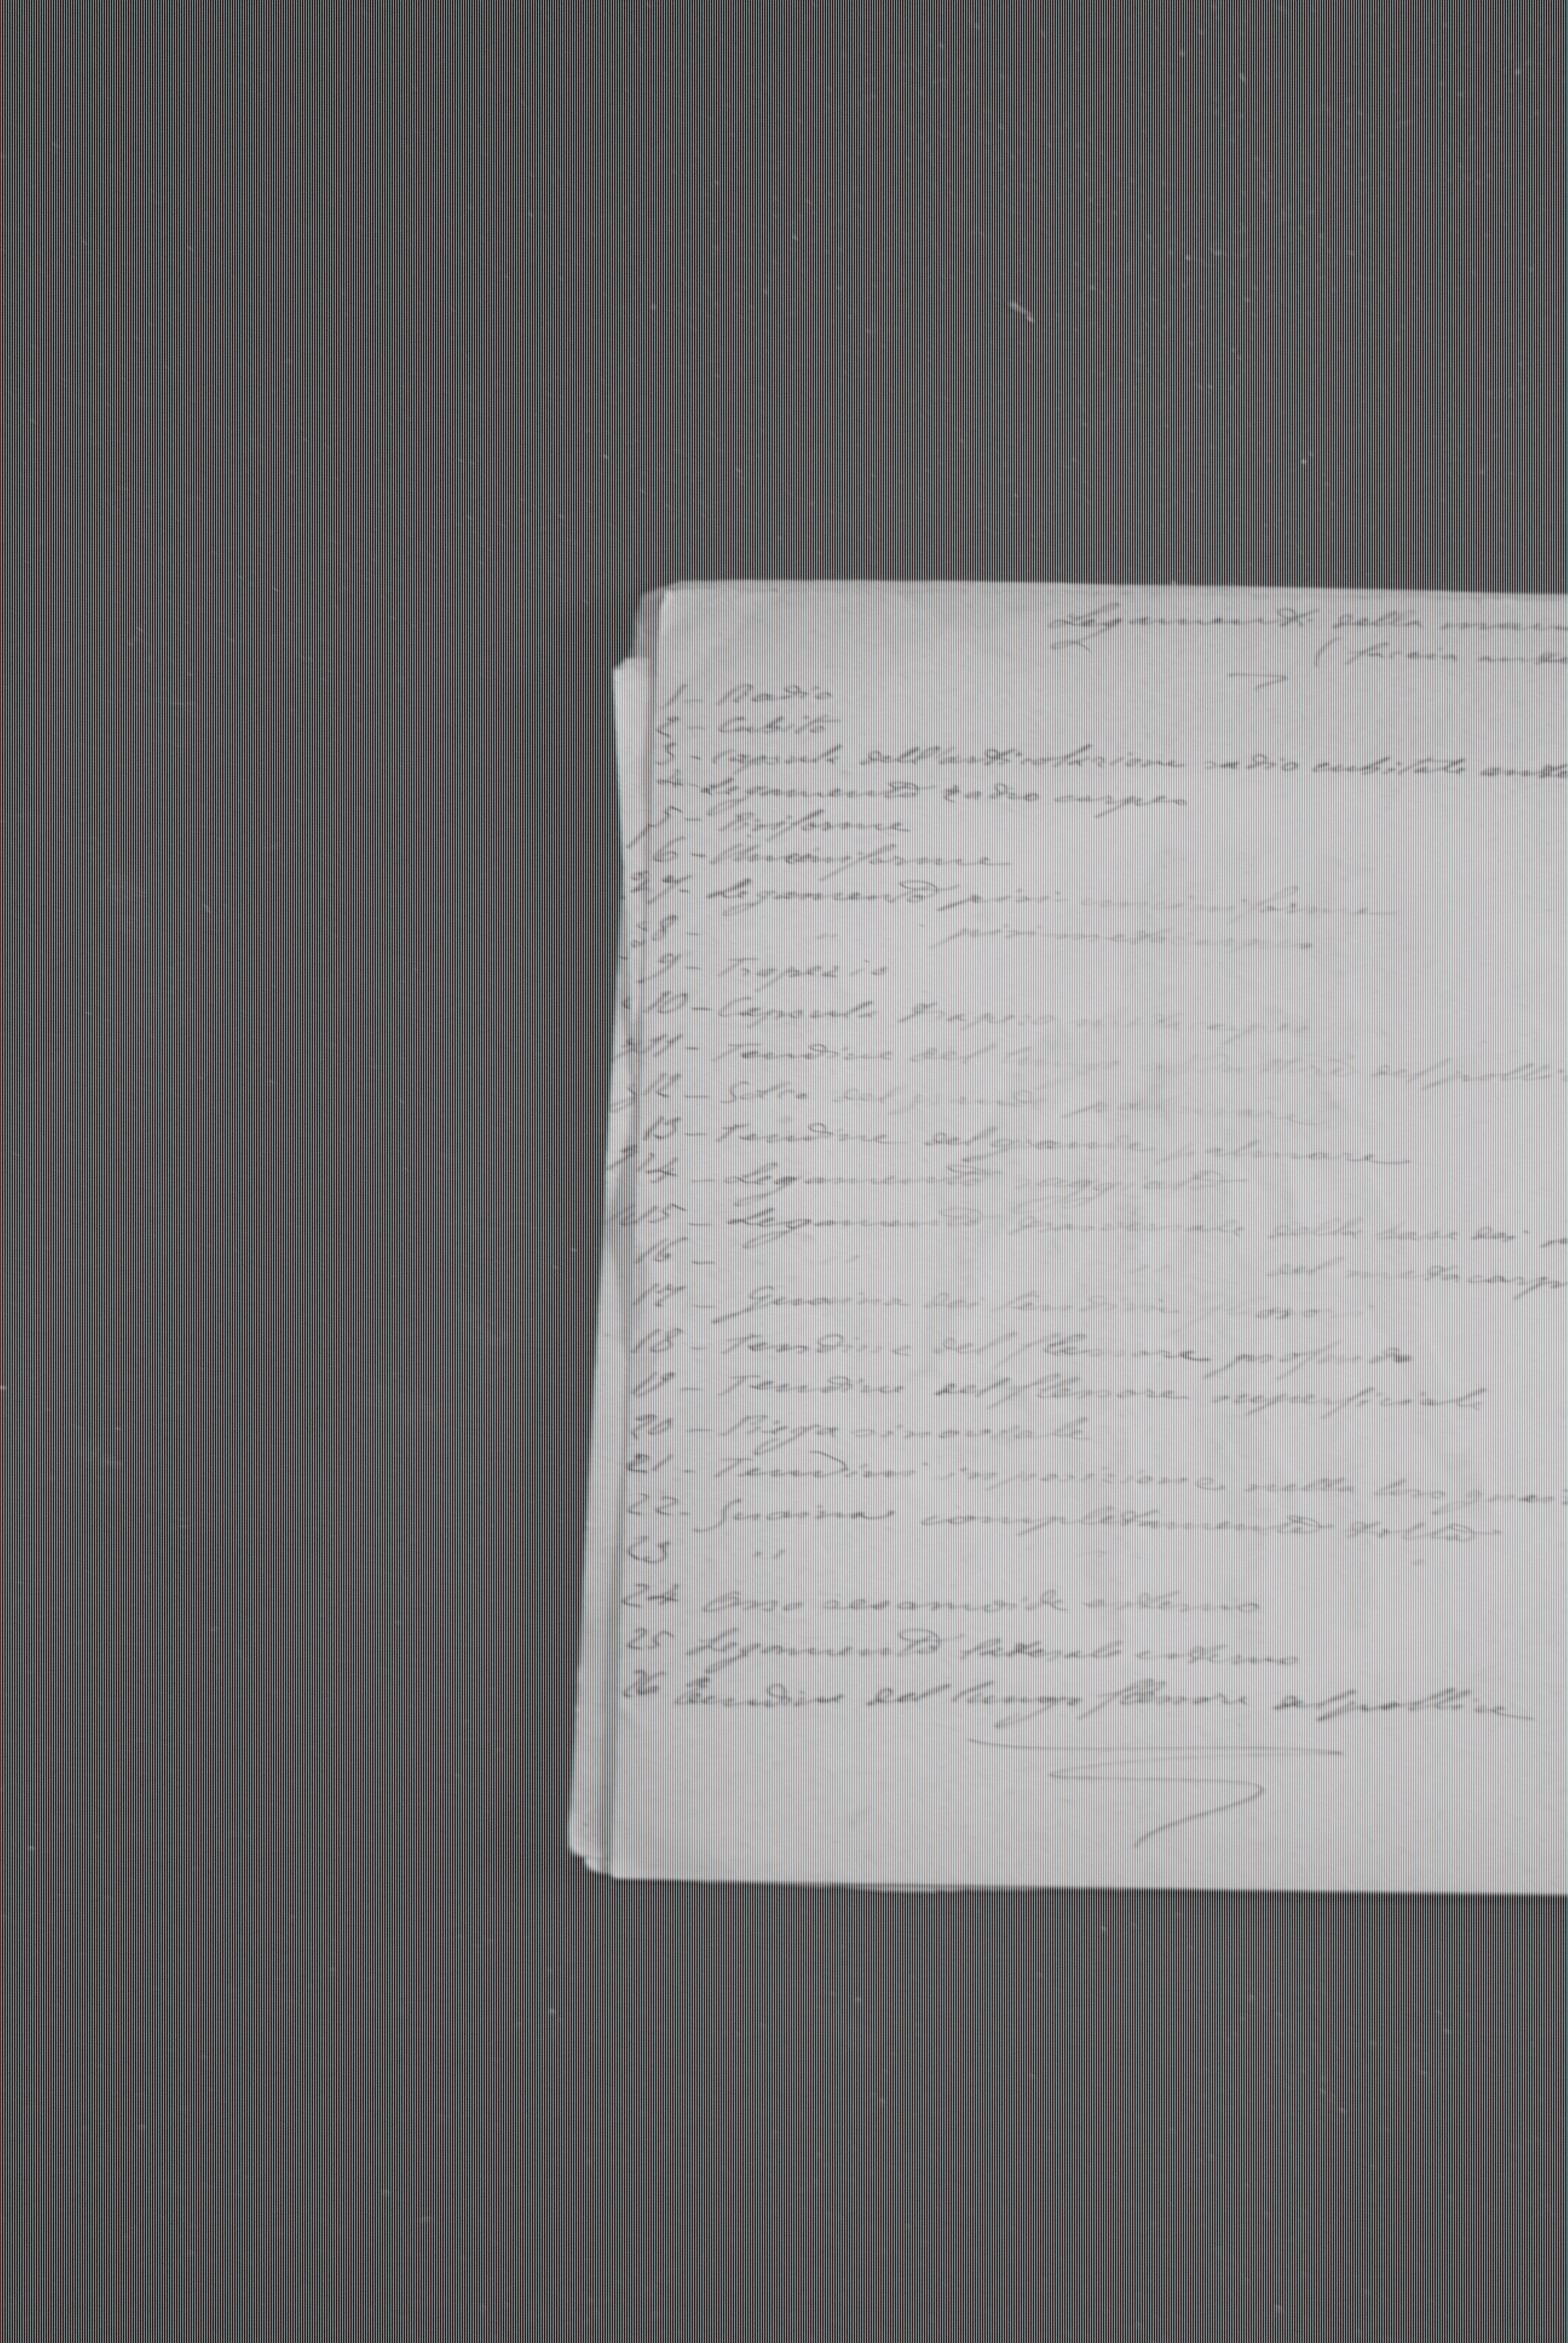 Legamenti della
( faccia
1 - Radio
2 - Cubito
3 - Capsula dell'articolazione radio cubitale
4 - Legamento radio carpeo
5 - Pisiforme
6 - Unciniforme
7 - Legamento pisi unciniforme
8 - " pisi metacarpeo
9 - Trapezio
10 - Capsula trapezo
11 - Tendine del lungo del
12 - Solco del grande palmare
13 - Tendine del grande palmare
14 - Legamento raggiato
15 - Legamento trasversale della base dei
16 - del
17 - Guaina dei tendini
18 - Tendine del flessore profondo
19 - Tendine del flessore superficiale
20 - Piega sinoviale
21 - Tendini in posizione nella loro
22 - Guaina completamente tolta
23 "
24 Osso sesamoide esterno
25 Legamento laterale esterno
26 Tendine del lungo flessore del pollice